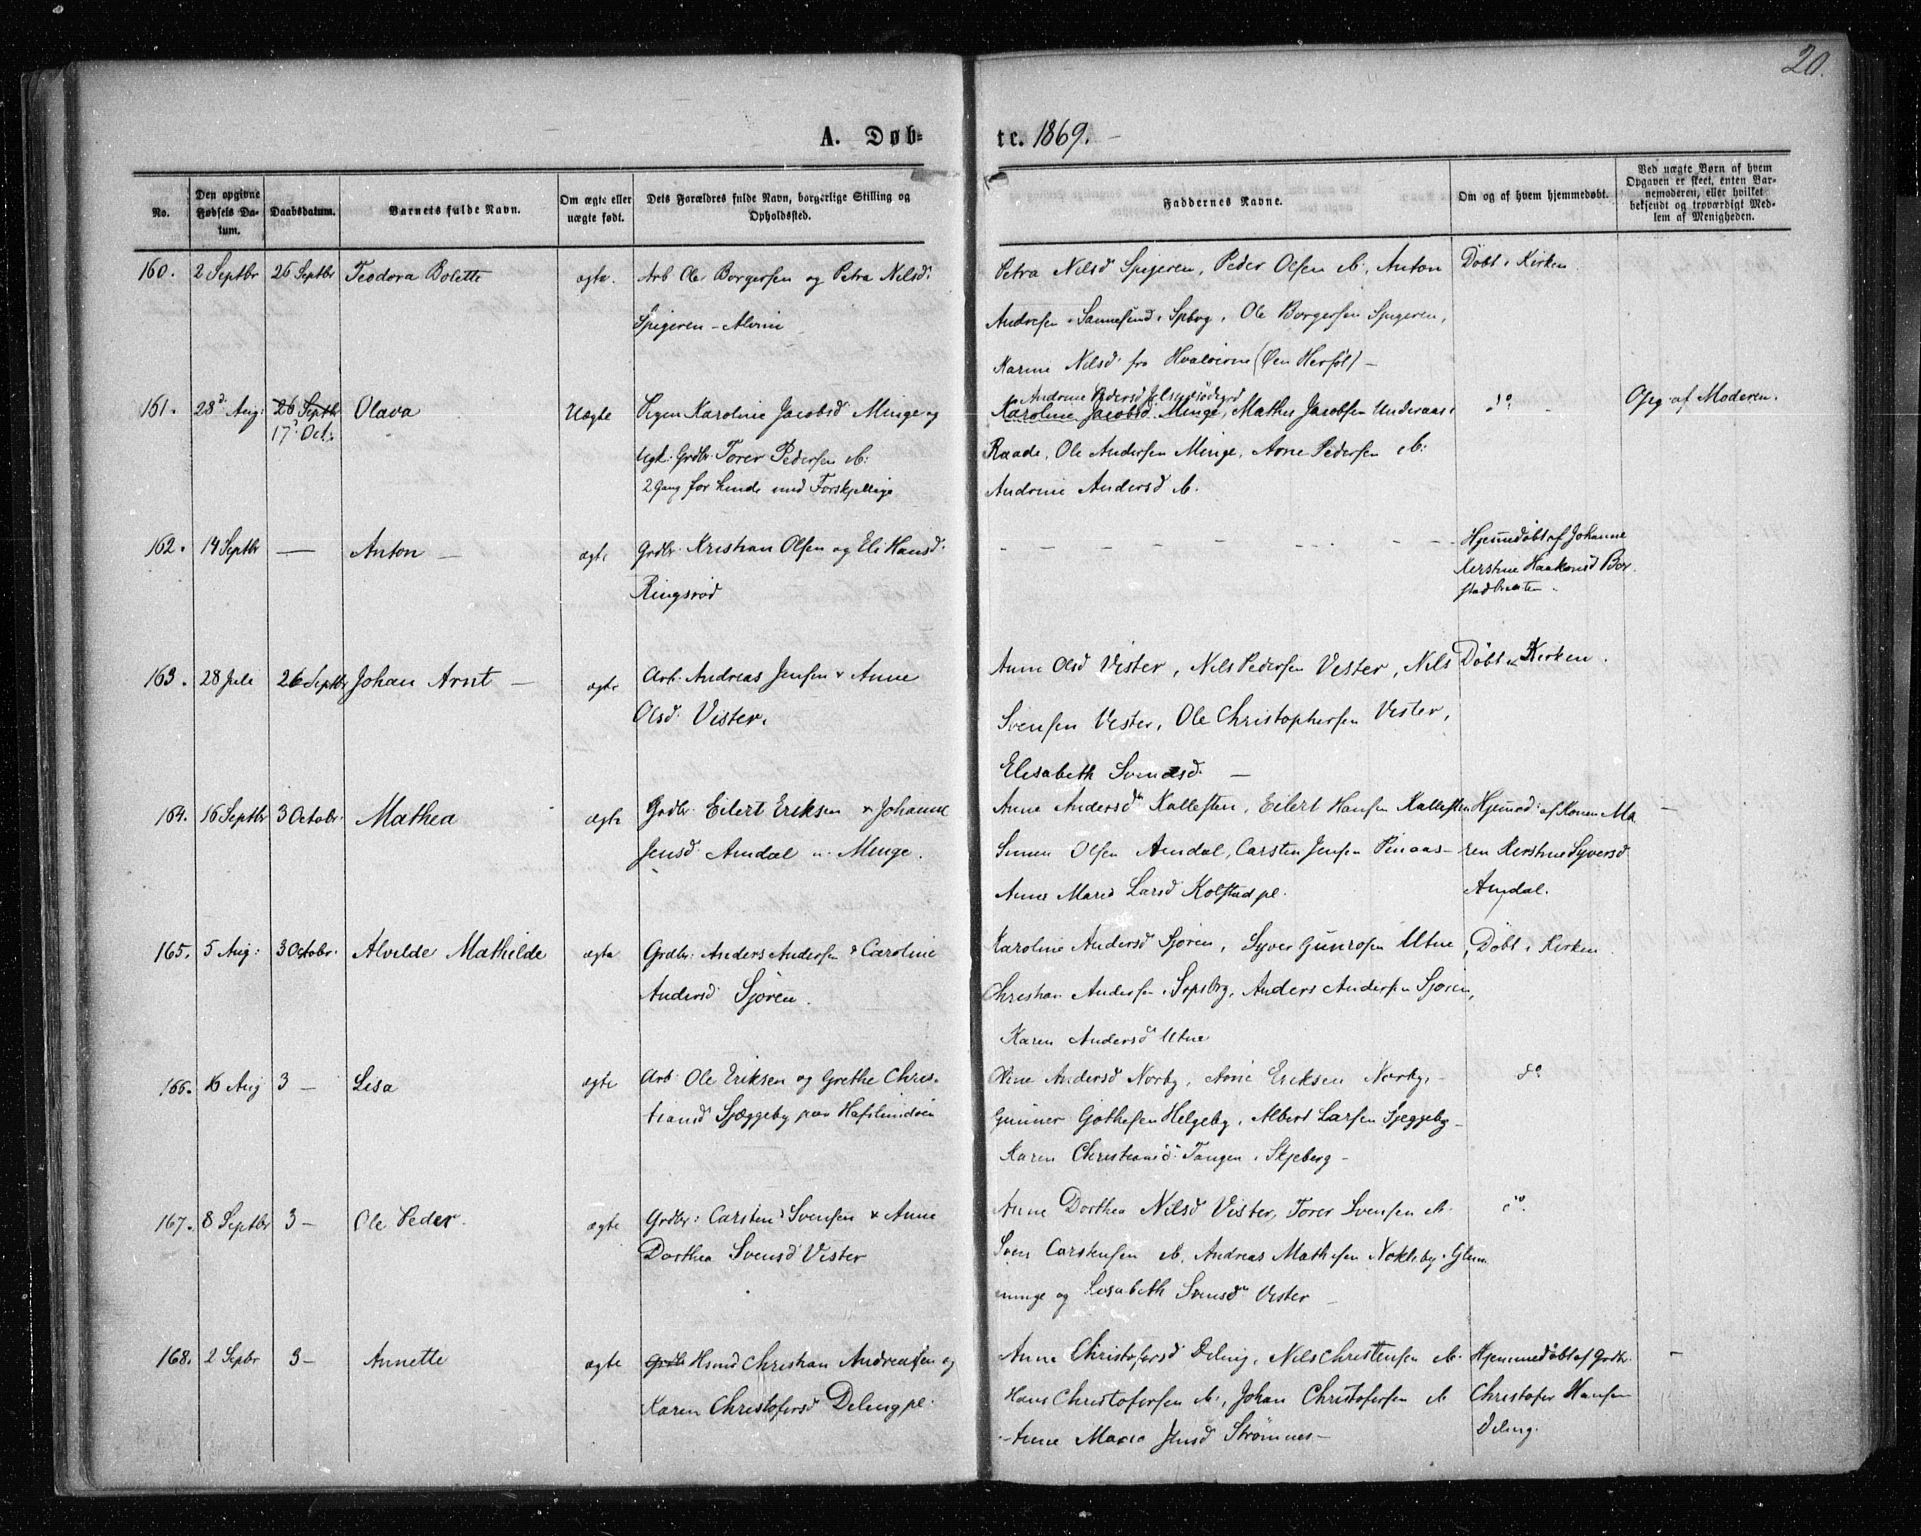 20.
A. Døb-
te. 1869.
No.
Den opgivne Fødsels Datum.
Daabsdatum.
Barnets fulde Navn.
Om ægte eller uægte født.
Dets Forældres fulde Navn, borgerlige Stilling og Opholdssted.
Faddernes Navne.
Om og af hvem hjemmedøbt.
Ved uægte Børn af hvem Opgaven er skeet, enten Barnemoderen, eller hvilket bekjendt og troværdigt Medlem af Menigheden.
160. 2 Septbr 26 Septbr Teodora Bolette ægte. Arb Ole Borgersen og Petra Nilsd:
Spigeren - Alvim
Petra Nilsd Spigeren, Peder Olsen ib., Anton
Andresen Sannesund i Spbrg, Ole Borgersen Spigeren,
Karine Nilsd fra Hvaløerne (Øen Herføl) -
Døbt i Kirken
161. 28d Aug: 26 Septbr Olava Uægte Pigen Karoline Jacobsd Minge og
17d Oct:
Ugk: Grdbr Torer Pedersen ib:
2 Gang for hende med Forskjellige
Andrine Pedersd
Karoline Jacobsd. Minge, Mathis Jacobsen Underaas i
Raade, Ole Andersen Minge, Arne Pedersen ib:
Andrine Andersd ib.
do
Opg. af Moderen.
162. 14 Septbr — Anton — ægte Grdbr. Kristian Olsen og Eli Hansd:
Ringsrød
Hjemmedøbt af Johanne
Kerstine Haakensd Bor
stadbraaten.
163. 28 Juli 26 Septbr Johan Arnt — ægte Arb: Andreas Jensen & Anne
Olsd: Vister.
Anne Olsd Vister, Nils Pedersen Vester, Nils
Svensen Vester, Ole Christophersen Vester,
Elisabeth Svendsd. —
Døbt i Kirken.
164. 16 Septbr 3 Octobr. Mathea ægte Grdbr Eilert Eriksen & Johanne
Jensd Amdal u. Minge.
Anne Andersd Kallesten, Eilert Hansen Kallesten
Simen Olsen Amdal, Carsten Jensen Pinaas-
Anne Marie Larsd Kolstad pl.
Hjemmd: af Konen Ma
ren Kerstine Syversd
Amdal.
—
165. 5 Aug: 3 Octobr. Alvilde Mathilde ægte Grdbr: Anders Andersen & Caroline
Andersd Sjøren.
Karoline Andersd Sjøren, Syver Gunrosen Utne,
Christian Andersen i Sarpsbrg, Anders Andersen Sjøren,
Karen Andersd Utne
Døbt i Kirken.
166. 16 Aug 3 — Lisa ægte Arb: Ole Eriksen og Grethe Chris.
tiansd Sjæggeby paa Hafslundøen
Oline Andersd Norby, Arne Eriksen Norby, -
Gunner Gothesen Helgeby, Albert Larsen Sjeggeby -
Karen Christiansd Tangen i Skjeberg -
do
167. 8 Septbr 3 — Ole Peder. ægte Grdbr: Carsten Svensen & Anne
Dorthea Svensd Vister
Anne Dorthea Nilsd Vister, Torer Svensen ib.
Sven Carstensen ib, Andreas Mathisen Nokleby i Glem
minge og Lisabeth Svensd Vester —
do.
168. 2 Sepbr 3 — Annette ægte Grdb Hsmd Christian Andreasen og
Karen Christofersd Deling pl.
Anne Christofersd Deling, Nils Christensen ib.
Hans Christofersen ib., Johan Christofersen ib
Anne Maria Jensd Strømnes -
Hjemmedøbt af Grdbr.
Christofer Hansen
Deling.
—